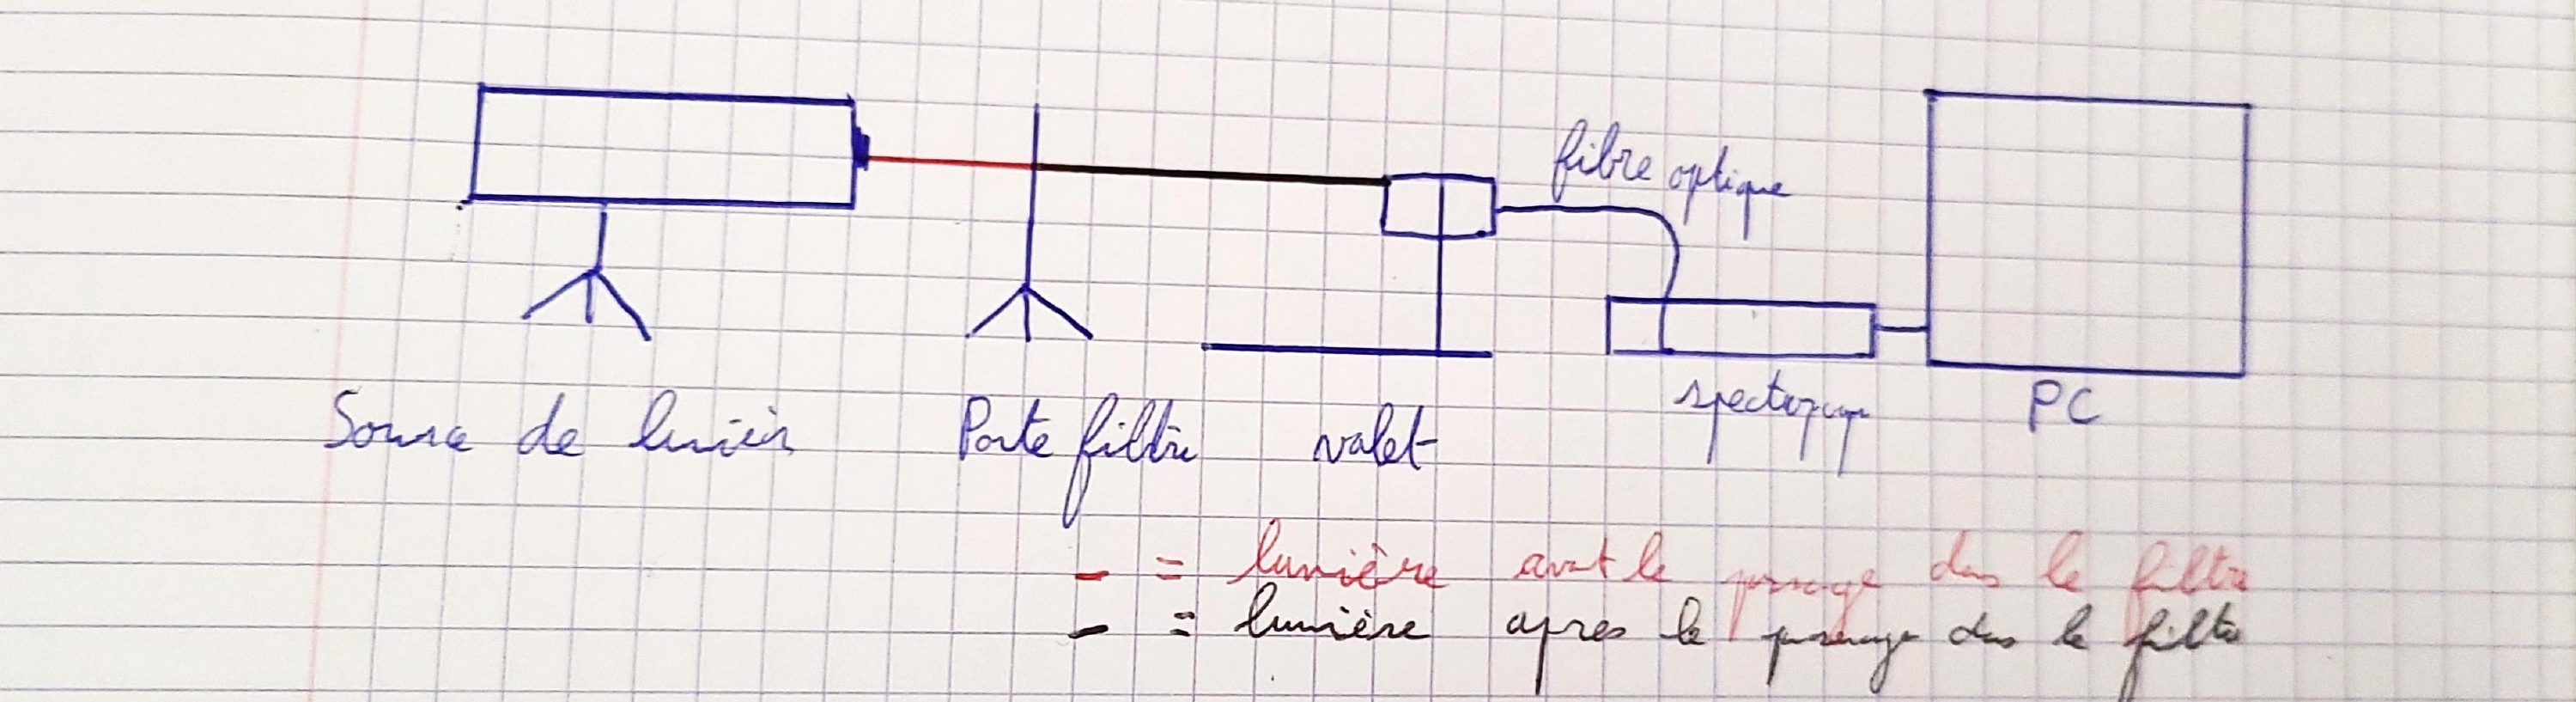 fibre optique
Source de lumière
Porte filtre
valet
PC
- = lumière avant le passage dans le filtre
- = lumière après le passage dans le filtre